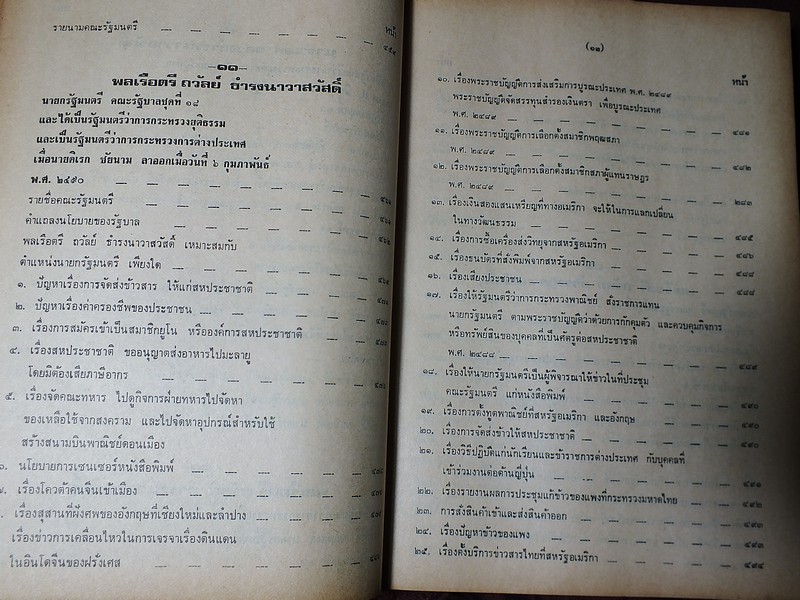 หน้า
รายนามคณะรัฐมนตรี
—๑๑—
พลเรือตรี ถวัลย์ ธำรงนาวาสวัสดิ์
นายกรัฐมนตรี คณะรัฐบาลชุดที่ ๑๘
และได้เป็นรัฐมนตรีว่าการกระทรวงยุติธรรม
และเป็นรัฐมนตรีว่าการกระทรวงการต่างประเทศ
เมื่อนายดิเรก ชัยนาม ลาออกเมื่อวันที่ ๖ กุมภาพันธ์
พ.ศ. ๒๔๙๐
รายชื่อคณะรัฐมนตรี
คำแถลงนโยบายของรัฐบาล
พลเรือตรี ถวัลย์ ธำรงนาวาสวัสดิ์ เหมาะสมกับ
ตำแหน่งนายกรัฐมนตรี เพียงใด
๑. ปัญหาเรื่องการจัดส่งข้าวสาร ให้แก่สหประชาชาติ
๒. ปัญหาเรื่องค่าครองชีพของประชาชน
๓. เรื่องการสมัครเข้าเป็นสมาชิกยูโน หรือองค์การสหประชาชาติ
๔. เรื่องสหประชาชาติ ขออนุญาตส่งอาหารไปมะลายู
โดยมิต้องเสียภาษีอากร
๕. เรื่องจัดคณะทหาร ไปดูกิจการฝ่ายทหารไปจัดหา
ของเหลือใช้จากสงคราม และไปจัดหาอุปกรณ์สำหรับใช้
สร้างสนามบินพาณิชย์ดอนเมือง
นโยบายการเซนเซอร์หนังสือพิมพ์
เรื่องโควต้าคนจีนเข้าเมือง
เรื่องสุสานที่ฝังศพของอังกฤษที่เชียงใหม่และลำปาง
เรื่องข่าวการเคลื่อนไหวในการเจรจาเรื่องดินแดน
ในอินโดจีนของฝรั่งเศส
(๑๒)
หน้า
๑๐. เรื่องพระราชบัญญัติการส่งเสริมการบูรณะประเทศ พ.ศ. ๒๔๘๙
พระราชบัญญัติจัดสรรทุนสำรองเงินตรา เพื่อบูรณะประเทศ
พ.ศ. ๒๔๘๙ ๔๘๑
๑๑. เรื่องพระราชบัญญัติการเลือกตั้งสมาชิกพฤฒสภา
พ.ศ. ๒๔๘๙ ๔๘๒
๑๒. เรื่องพระราชบัญญัติการเลือกตั้งสมาชิกสภาผู้แทนราษฎร
พ.ศ. ๒๔๘๙ ๒๘๓
๑๓. เรื่องเงินสองแสนเหรียญที่ทางอเมริกา จะให้ในการแลกเปลี่ยน
ในทางวัฒนธรรม ๔๘๕
๑๔. เรื่องการซื้อเครื่องส่งวิทยุจากสหรัฐอเมริกา ๔๘๖
๑๕. เรื่องธนบัตรที่สั่งพิมพ์จากสหรัฐอเมริกา ๔๘๘
๑๖. เรื่องเสียงประชาชน ๔๘๘
๑๗. เรื่องให้รัฐมนตรีว่าการกระทรวงพาณิชย์ สั่งราชการแทน
นายกรัฐมนตรี ตามพระราชบัญญัติว่าด้วยการกักคุมตัว และควบคุมกิจการ
หรือทรัพย์สินของบุคคลที่เป็นศัตรูต่อสหประชาชาติ
พ.ศ. ๒๔๘๘ ๔๘๙
๑๘. เรื่องให้นายกรัฐมนตรีเป็นผู้พิจารณาให้ข่าวในที่ประชุม
คณะรัฐมนตรี แก่หนังสือพิมพ์ ๔๙๐
๑๙. เรื่องการตั้งทูตพาณิชย์ที่สหรัฐอเมริกา และอังกฤษ ๔๙๐
๒๐. เรื่องการจัดส่งข้าวให้สหประชาชาติ ๔๙๐
๒๑. เรื่องวิธีปฏิบัติแก่นักเรียนและข้าราชการต่างประเทศ กับบุคคลที่
เข้าร่วมงานต่อต้านญี่ปุ่น ๔๙๑
๒๒. เรื่องรายงานผลการประชุมแก้ข้าวของแพงที่กระทรวงมหาดไทย ๔๙๒
๒๓. การสั่งสินค้าเข้าและส่งสินค้าออก ๔๙๓
๒๔. เรื่องปัญหาข้าวของแพง ๔๙๓
๒๕. เรื่องตั้งบริการข่าวสารไทยที่สหรัฐอเมริกา ๔๙๔